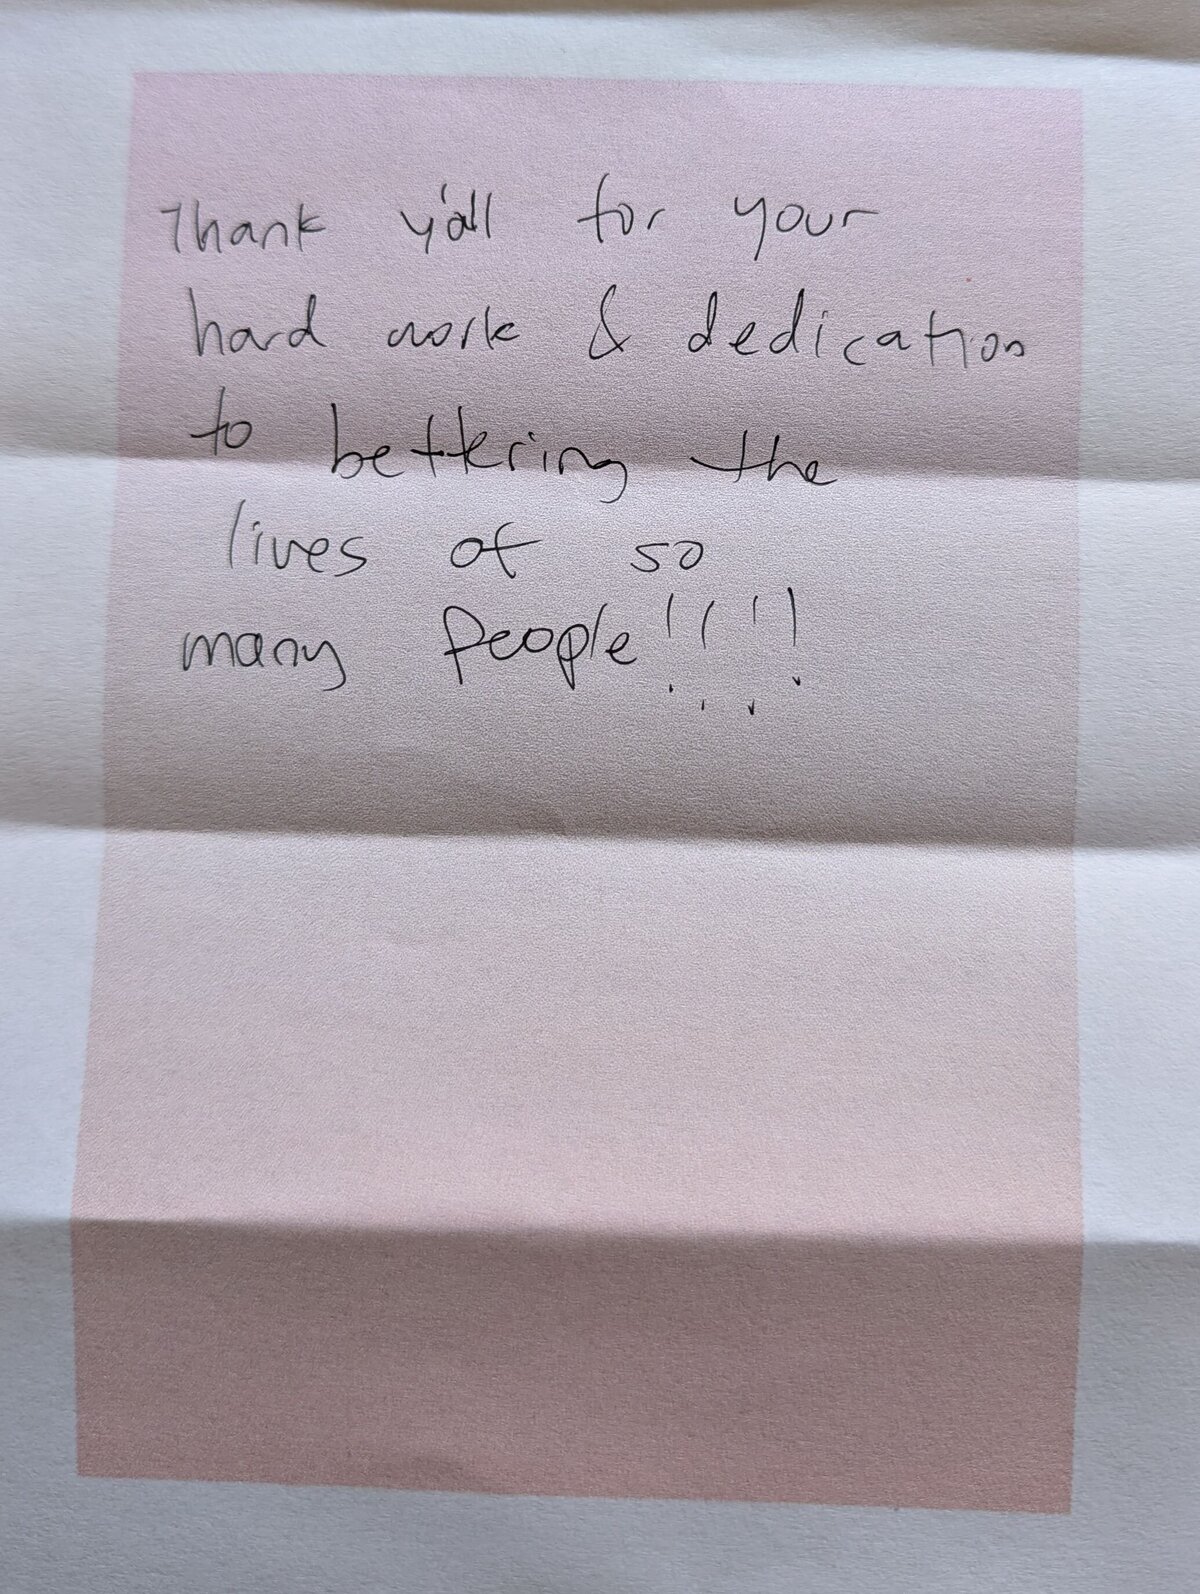 Thank y'all for your
hard work & dedication
to bettering the
lives of so
many people!!!!